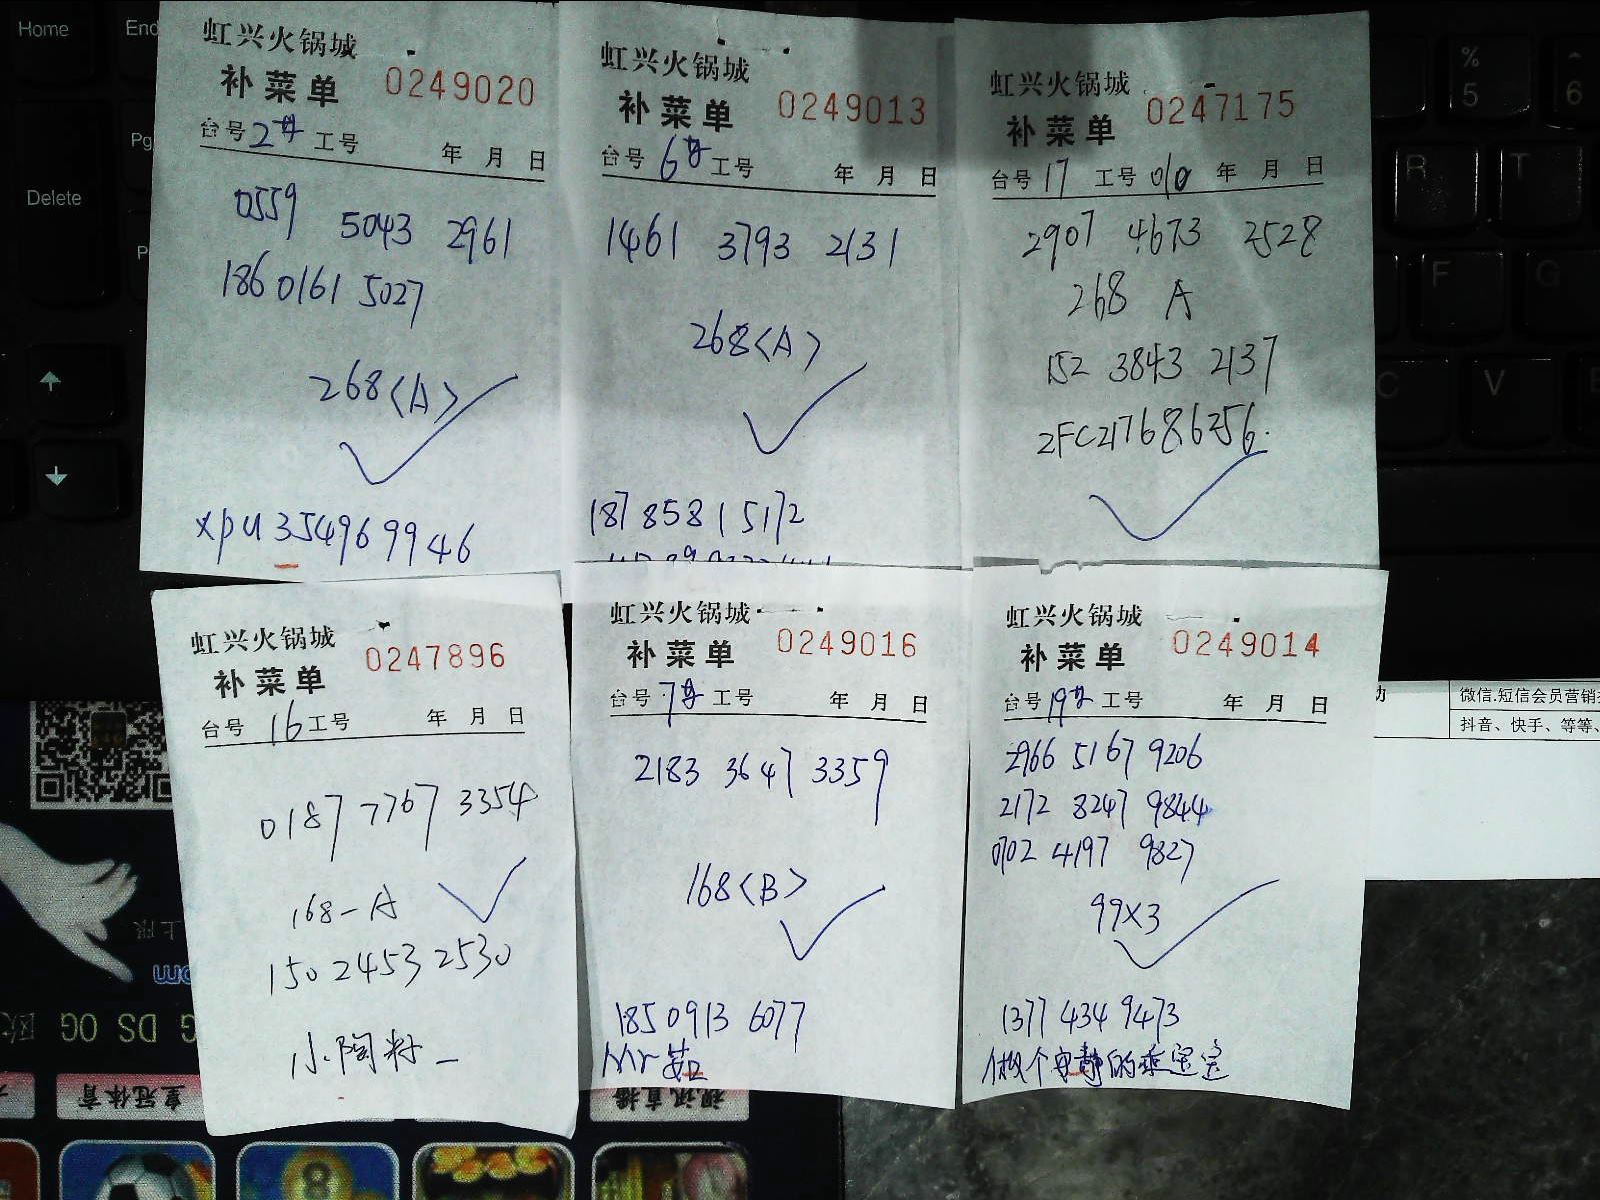 虹兴火锅城
补菜单 0249020
台号 2# 工号 年 月 日
0559 5043 2961
186 0161 5027
268<A>
xpu354969946
虹兴火锅城
补菜单 0249013
台号 6# 工号 年 月 日
1461 3793 2131
268<A>
187 8581 5172
虹兴火锅城
补菜单 0247175
台号 17 工号 010 年 月 日
2907 4673 2528
268 A
152 3843 2137
2FC217686256.
虹兴火锅城
补菜单 0247896
台号 16 工号 年 月 日
0187 7767 3354
168-A
150 2453 2530
小陶籽_
虹兴火锅城
补菜单 0249016
台号 7# 工号 年 月 日
2183 3647 3359
168<B>
185 0913 6077
Mr茹
虹兴火锅城
补菜单 0249014
台号 19# 工号 年 月 日
2966 5167 9206
2172 8247 9844
0702 4197 9827
99X3
1377 434 9473
做个安静的乖宝宝
Home
End
Delete
% 5
6
R
T
F
G
C
V
微信.短信会员营销
抖音、快手、等等、
上限
DS OG 欧
皇冠体育
视讯直播